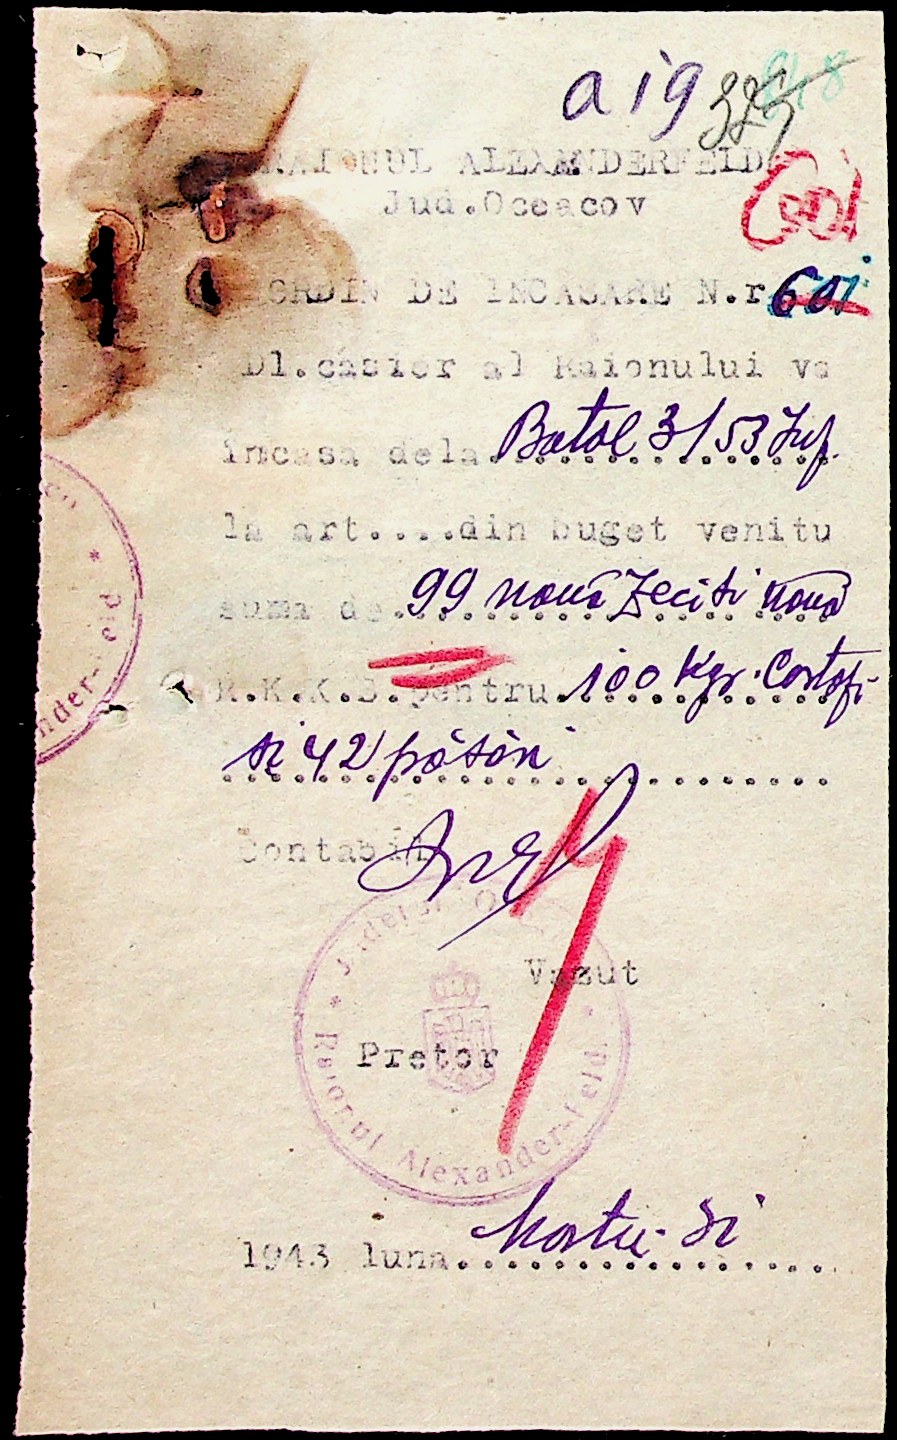 a 19
RAIONUL ALEXANDERFELD
Jud.Oceacov
ORDIN DE INCASARE N.r 601
Dl.casier al Raionului va
incasa dela Batal 3/53 Inf.
la art....din buget venitu
suma de 99 nouă zeciti nouă
R.K.K.S.pentru 100 Kgr. Cartofi
si 42 pâsâni
Contabil
Vazut
Pretor
Judetul O
* Raionul Alexander-Feld. *
nder-Feld *
1943 luna Martie 31